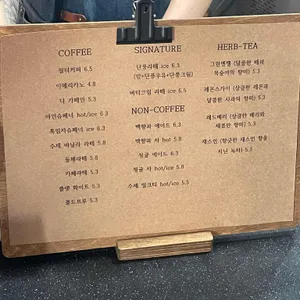 COFFEE
필터커피 6.5
아메리카노 4.8
디 카페인 5.3
아인슈페너 hot/ice 6.3
흑임자슈페너 ice 6.3
수제 바닐라 라떼 5.8
돌체라떼 5.8
카페라떼 5.3
플랫 화이트 5.3
콜드브루 5.3
SIGNATURE
단풍라떼 ice 6.3
버터크림 라떼 ice 6.3
NON-COFFEE
백향과 에이드 6.3
백향과 차 hot 5.8
청귤 에이드 6.3
청귤 차 hot 5.8
수제 밀크티 hot/ice 5.5
HERB-TEA
그린멘젤 (달콤한 배와
복숭아의 향미) 5.3
레몬스카이 (상큼한 레몬과
달콤한 사과의 향미) 5.3
레드베리 (상큼한 베리와
새콤한 향미) 5.3
재스민 (향긋한 재스민 향을
지닌 녹차) 5.3